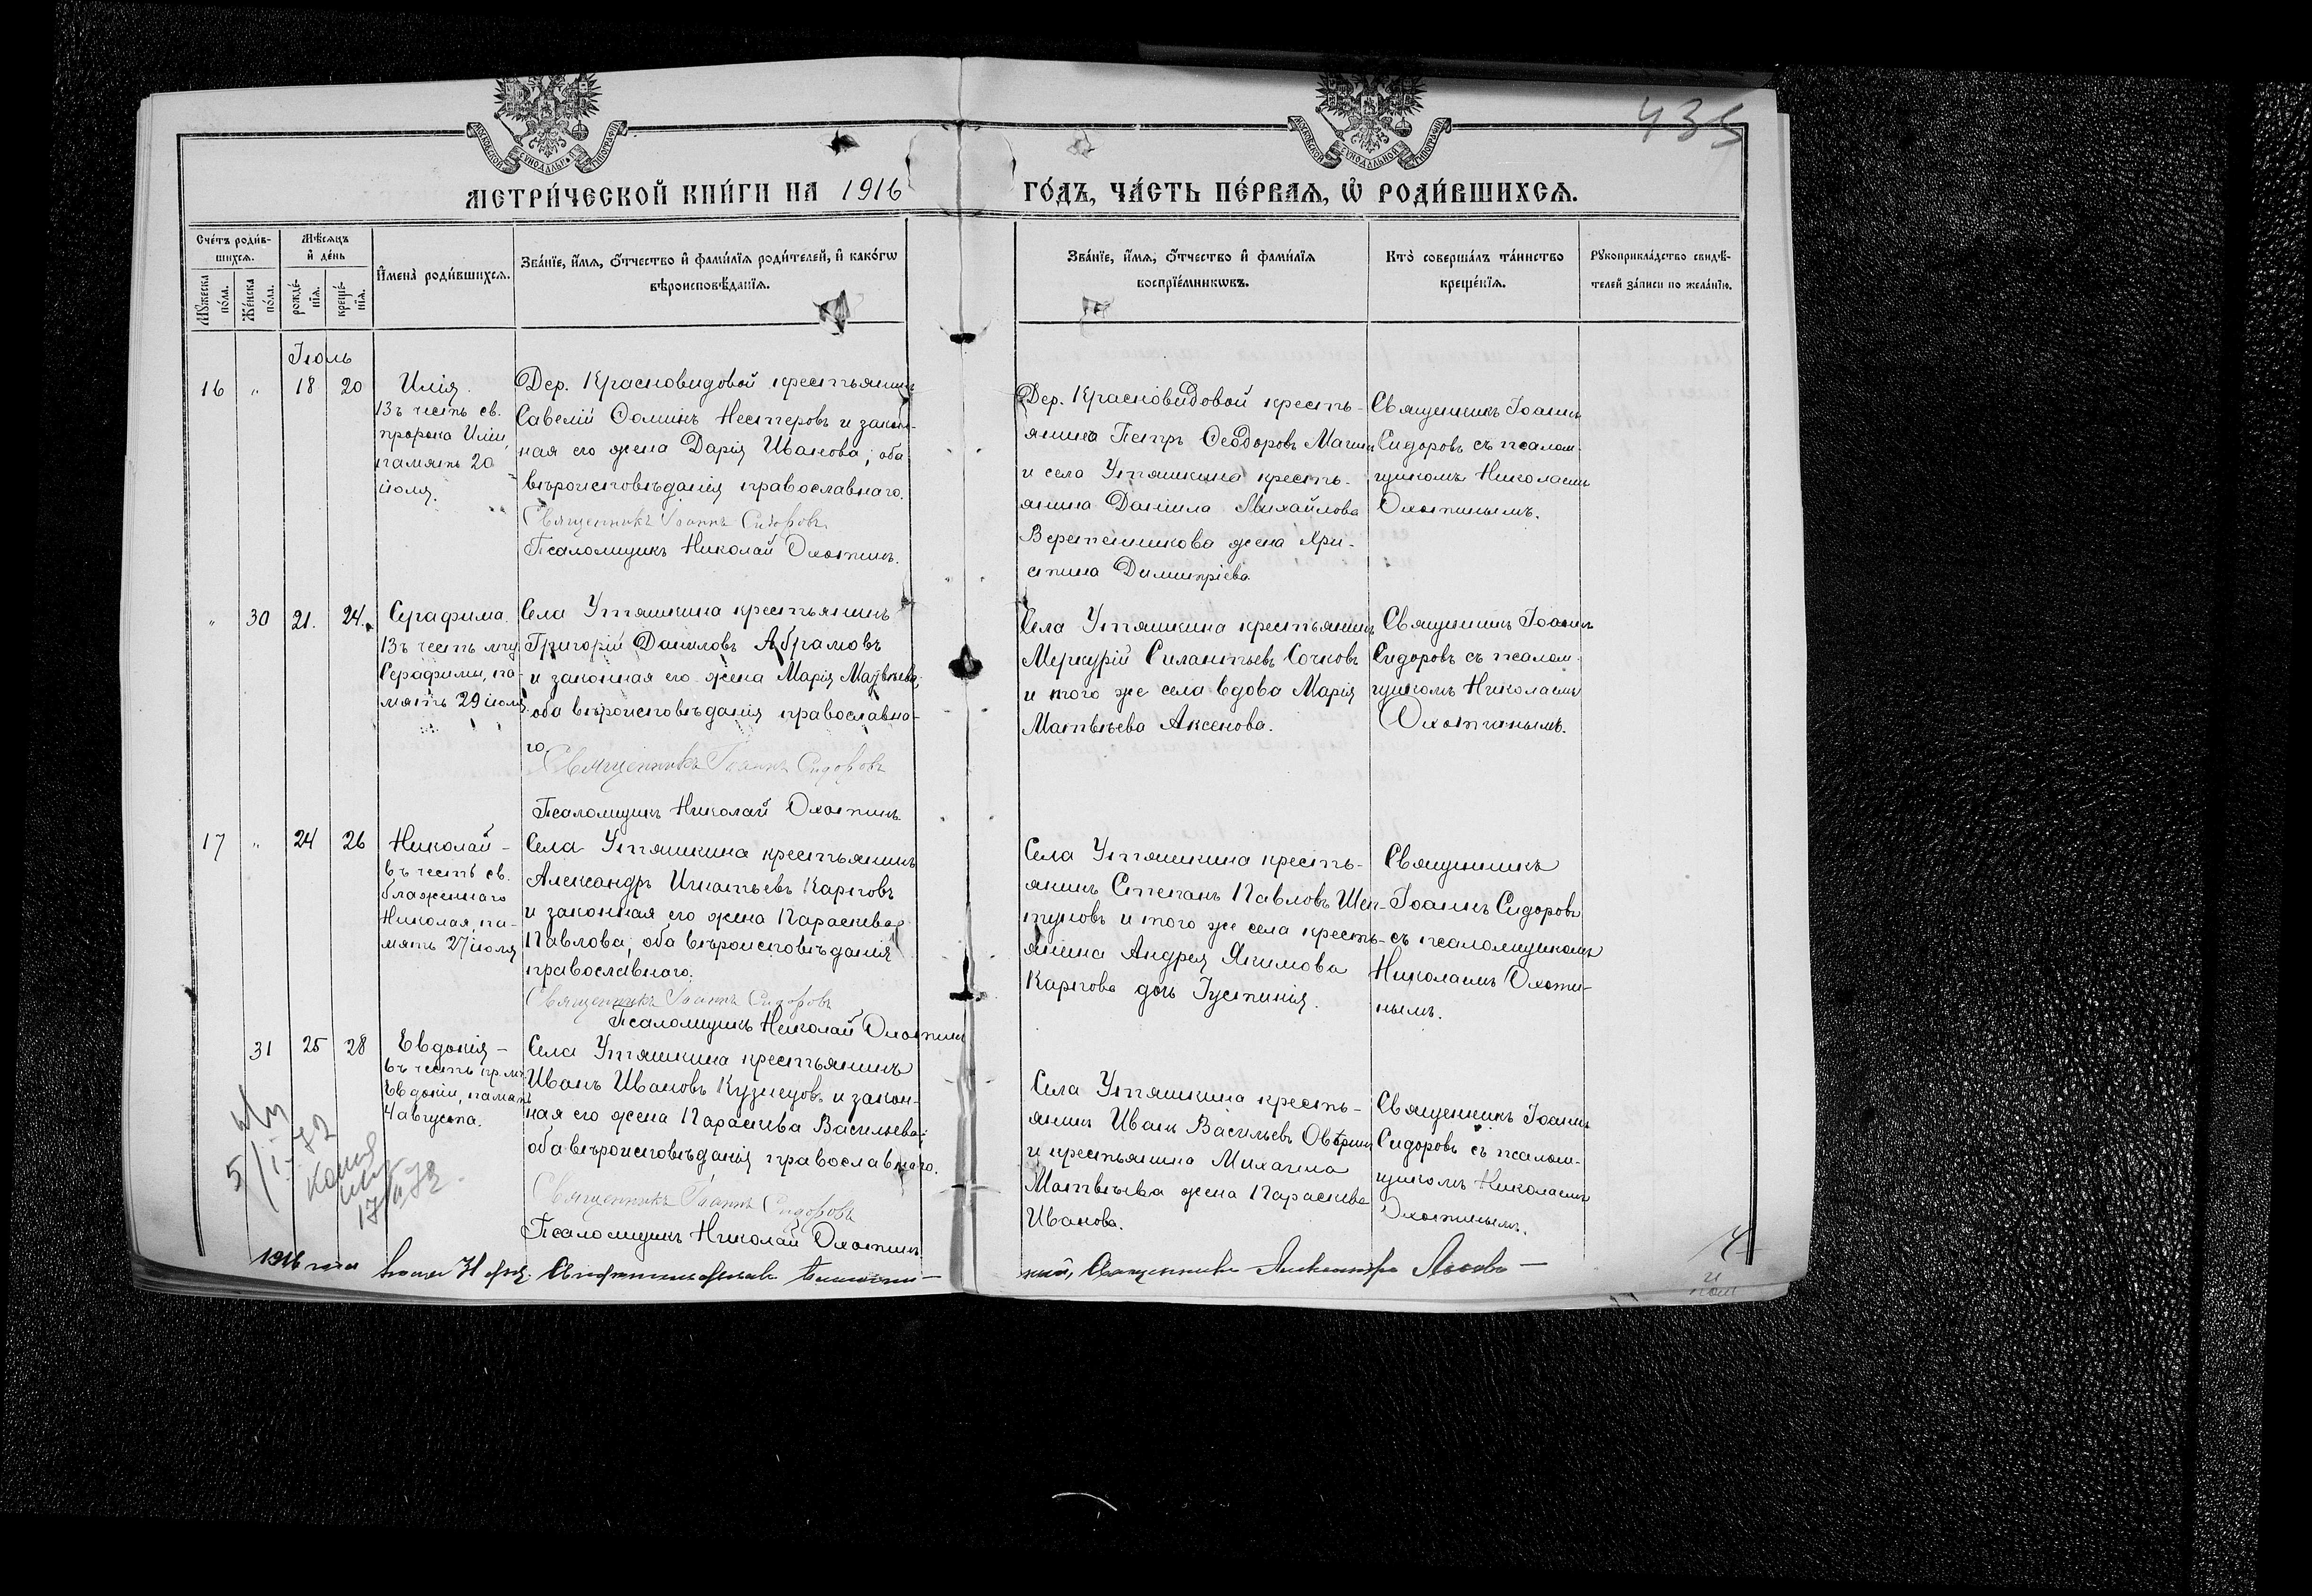 435
МОСКОВСКОЙ СѴНОДАЛЬНОЙ ТИПОГРАФІИ
МОСКОВСКОЙ СѴНОДАЛЬНОЙ ТИПОГРАФІИ
МЕТРИ́ЧЕСКОЙ КНИ́ГИ НА 1916
ГО́ДЪ, ЧА́СТЬ ПЕ́РВАѦ, Ѡ҆ РОДИ́ВШИХСѦ.
Сче́тъ роди́в-
шихсѧ.
Мꙋ́жеска по́ла.
Же́нска по́ла.
Мѣ́сѧцъ
и҆ де́нь
рожде́-
нїѧ.
креще́-
нїѧ.
И҆мена̀ роди́вшихсѧ.
Зва́нїе, и҆́мѧ, ѻ҆́тчество и҆ фами́лїѧ роди́телей, и҆ како́гѡ
вѣроисповѣ́данїѧ.
Зва́нїе, и҆́мѧ, ѻ҆́тчество и҆ фами́лїѧ
воспрїе́мникѡвъ.
Кто̀ соверша́лъ та́инство
креще́нїѧ.
Рꙋкоприкла́дство свидѣ́-
телей за́писи по жела́нїю.
Іюль
16 " 18 20
Илія.
Въ честь св.
пророка Иліи,
память 20
іюля.
Дер. Красновидовой крестьянинъ
Савелій Ѳоминъ Нестеровъ и закон-
ная его жена Дарія Иванова; оба
вѣроисповѣданія православнаго.
Священникъ Іоаннъ Сидоровъ
Псаломщикъ Николай Охотинъ.
Дер. Красновидовой кресть-
янинъ Петръ Ѳеодоровъ
и села Утяшкина кресть-
янина Даніила Михайлова
Веретенникова жена Хри-
стина Димитріева
Священникъ Іоаннъ
Сидоровъ съ псалом-
щикомъ Николаемъ
Охотинымъ.
" 30 21. 24.
Серафима.
Въ честь мчц
Серафимы, па-
мять 29 іюля.
Села Утяшкина крестьянинъ
Григорій Даниловъ Абрамовъ
и законная его жена Марія Матвѣева;
оба вѣроисповѣданія православна-
го.
Священникъ Іоаннъ Сидоровъ
Псаломщикъ Николай Охотинъ.
Села Утяшкина крестьянинъ
Меркурій Силантьевъ Сочковъ
и того же села вдова Марія
Матвѣева Аксенова.
Священникъ Іоаннъ
Сидоровъ съ псалом-
щикомъ Николаемъ
Охотинымъ.
17 " 24 26
Николай -
въ честь св.
блаженнаго
Николая, па-
мять 27 іюля
Села Утяшкина крестьянинъ
Александръ Игнатьевъ Карповъ
и законная его жена Параскева
Павлова; оба вѣроисповѣданія
православнаго.
Священникъ Іоаннъ Сидоровъ
Псаломщикъ Николай Охотинъ
Села Утяшкина кресть-
янинъ Степанъ Павловъ Шеп-
туновъ и того же села кресть-
янина Андрея Якимова
Карпова дочь Іустинія.
Священникъ
Іоаннъ Сидоровъ
съ псаломщикомъ
Николаемъ Охоти-
нымъ.
31 25 28
Евдокія -
въ честь пр.мч.
Евдокіи, память
4 августа.
Села Утяшкина крестьянинъ
Иванъ Ивановъ Кузнецовъ и закон-
ная его жена Параскева Васильева;
оба вѣроисповѣданія православнаго.
Священникъ Іоаннъ Сидоровъ
Псаломщикъ Николай Охотинъ.
Села Утяшкина кресть-
янинъ Иванъ Васильевъ
и крестьянина Михаила
Матвѣева жена Параскева
Иванова.
Священникъ Іоаннъ
Сидоровъ съ псалом-
щикомъ Николаемъ
Охотинымъ.
5/I-72
копия
1916 года
Священникъ Александръ